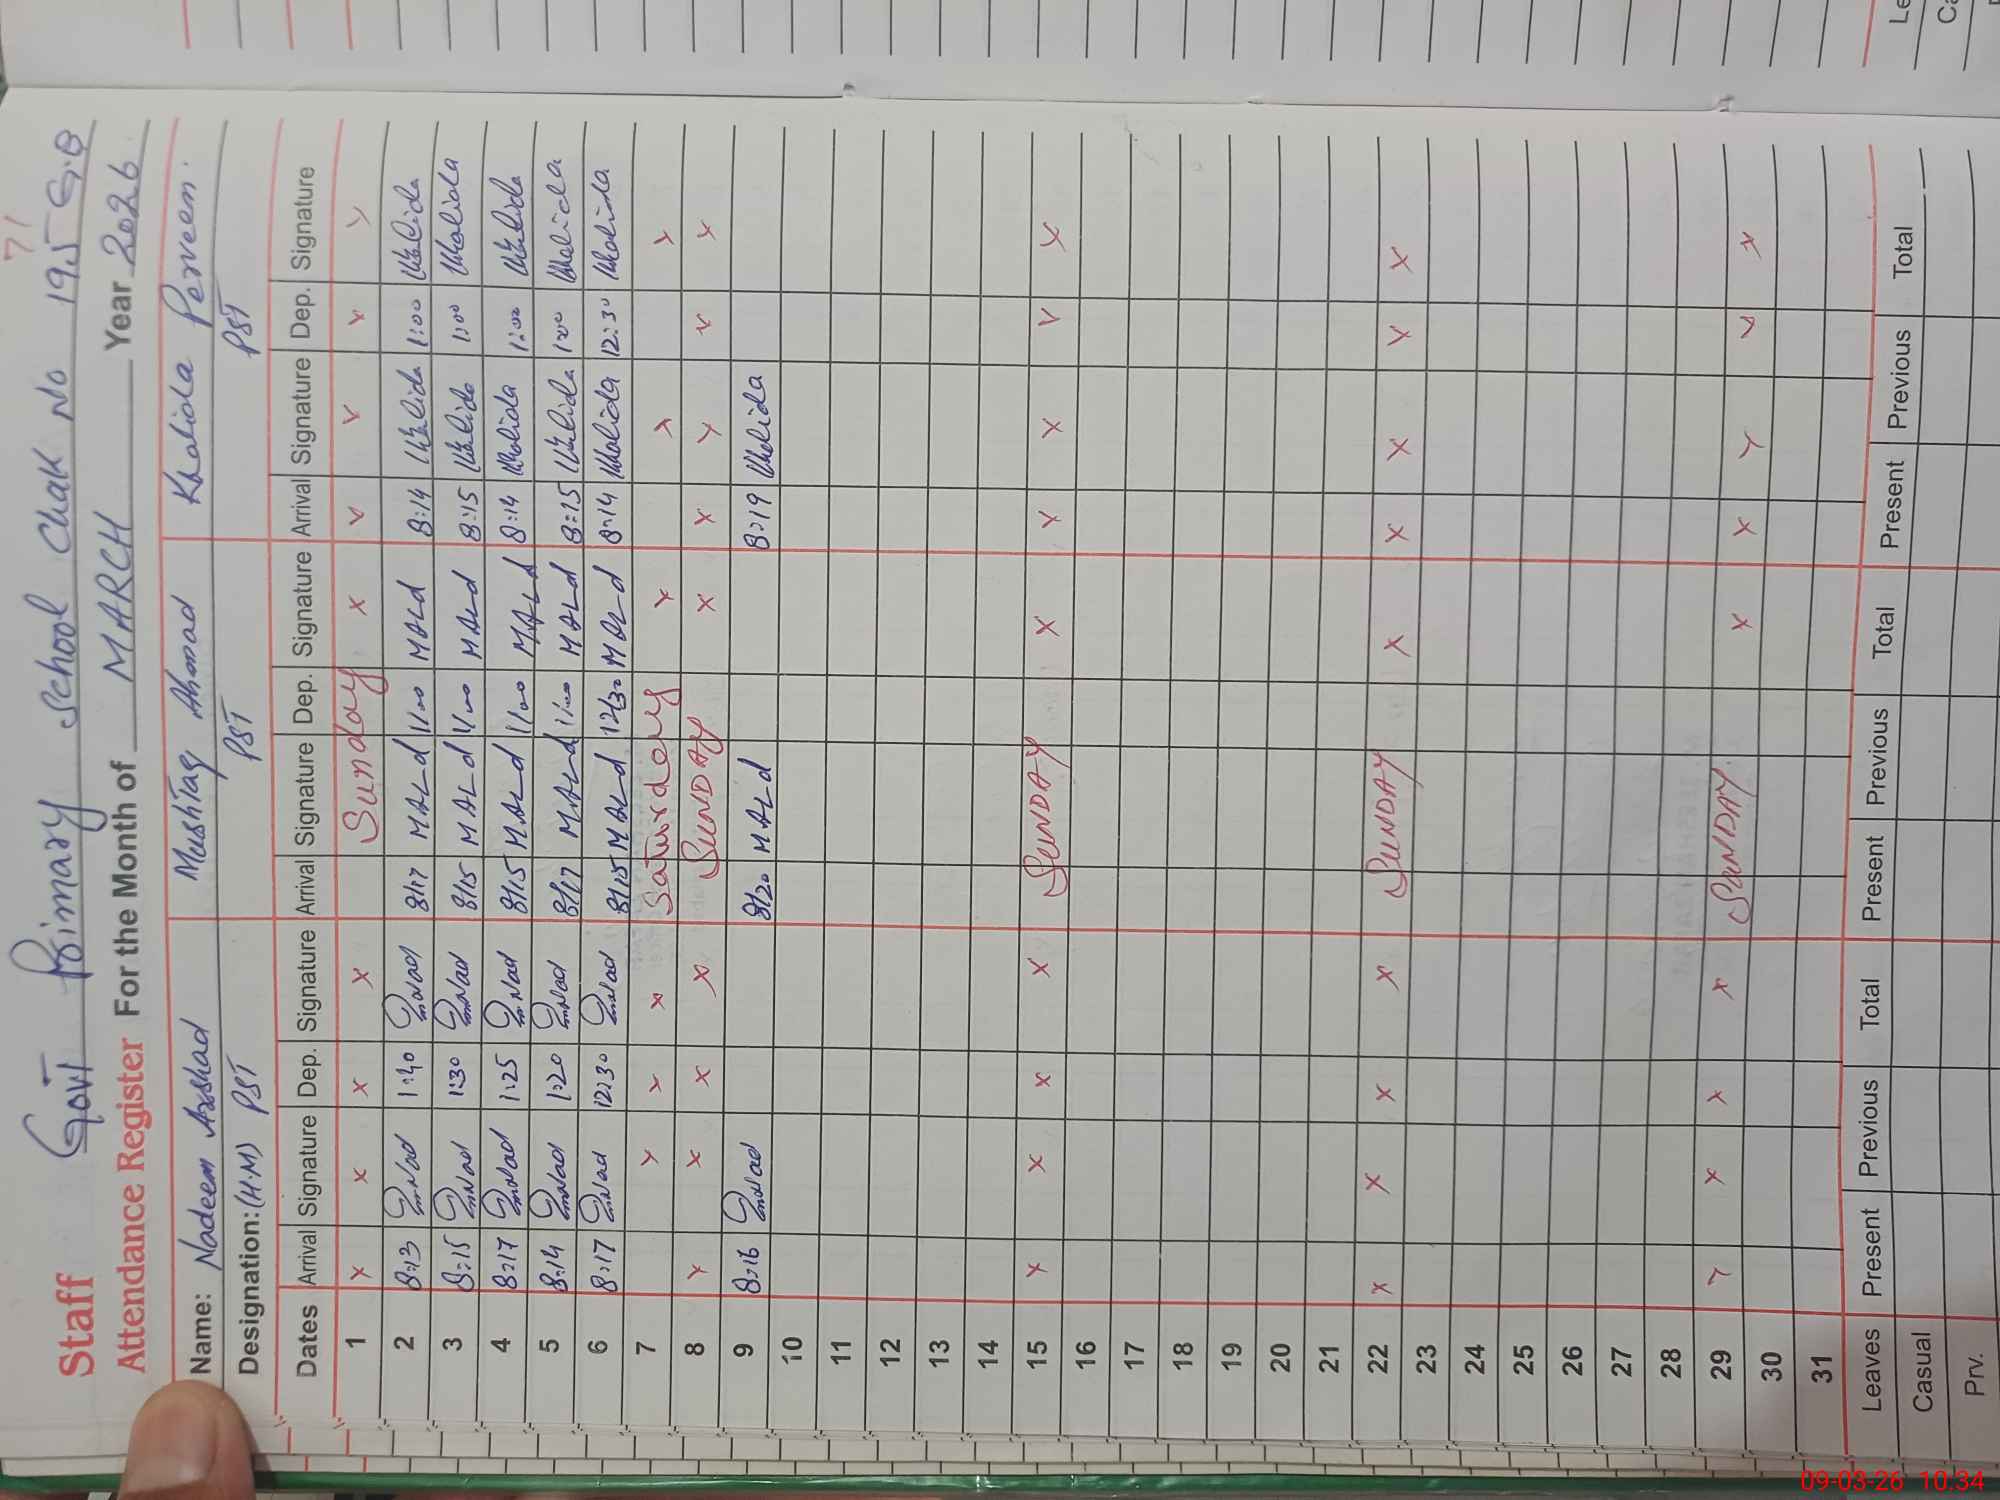 71
Staff Govt Primary School Chak No 195 G.B
Attendance Register For the Month of MARCH Year 2026
Name: Nadeem Arshad Mushtaq Ahmad Khalida Perveen.
Designation: (H.M) PST PST PST
Dates Arrival Signature Dep. Signature Arrival Signature Dep. Signature Arrival Signature Dep. Signature
1 x x x x Sunday x x x x x
2 8:13 1:40 8/17 MALd 11:00 MALd 8:14 Khalida 1:00 Khalida
3 8:15 1:30 8/15 MALd 11:00 MALd 8:15 Khalida 1:00 Khalida
4 8:17 1:25 8/15 MALd 11:00 MALd 8:14 Khalida 1:00 Khalida
5 8:14 1:20 8/17 MALd 11:00 MALd 8:15 Khalida 1:00 Khalida
6 8:17 12:30 8/15 MALd 12/30 MALd 8:14 Khalida 12:30 Khalida
7 x x x Saturday x x x
8 x x x x SUNDAY x x x x x
9 8:16 8/20 MALd 8:19 Khalida
10
11
12
13
14
15 x x x x SUNDAY x x x x x
16
17
18
19
20
21
22 x x x x SUNDAY x x x x x
23
24
25
26
27
28
29 x x x x SUNDAY x x x x x
30
31
Leaves Present Previous Total Present Previous Total Present Previous Total
Casual
Prv.
09-03-26 10:34